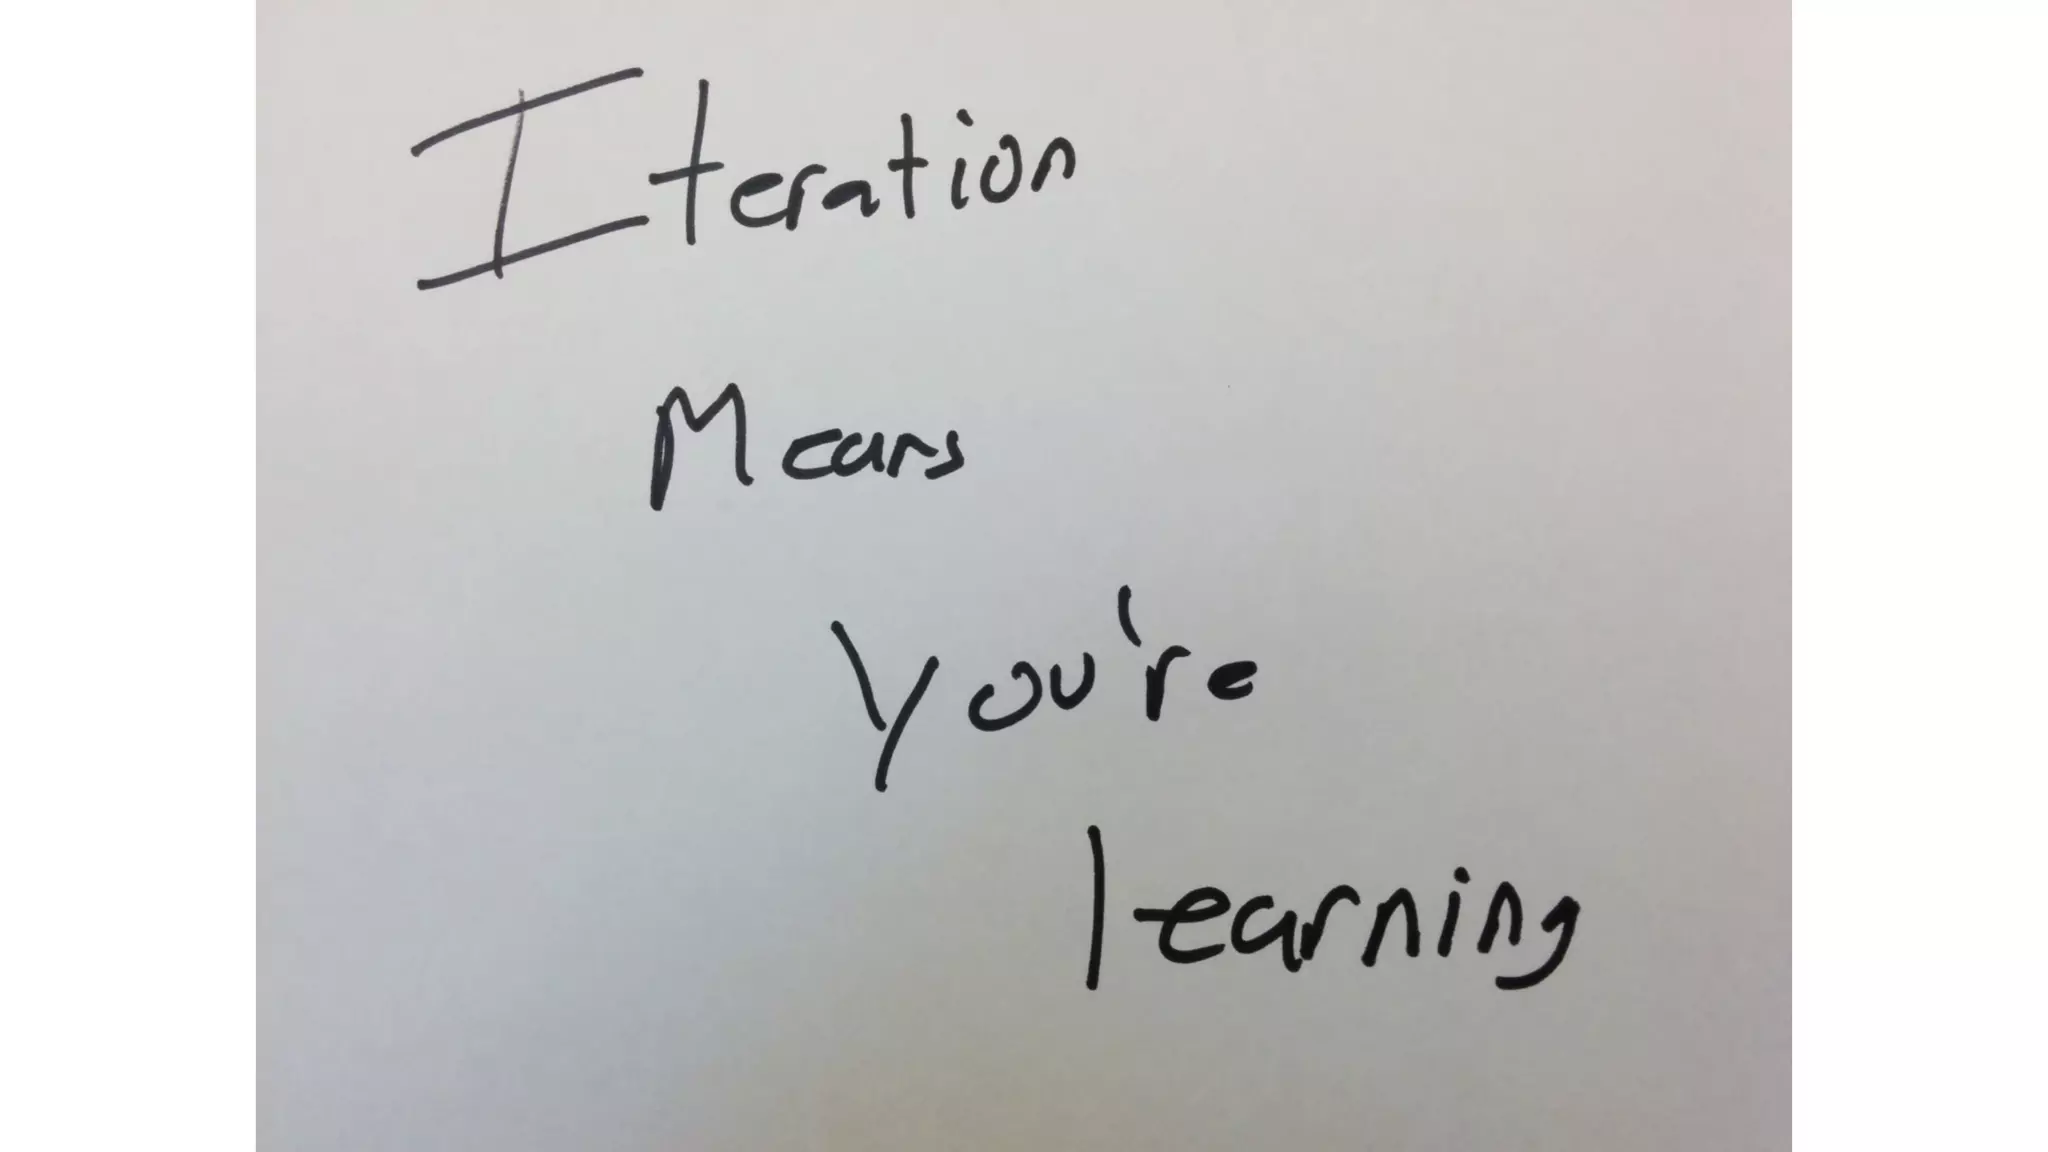 Iteration
Means
You're
learning